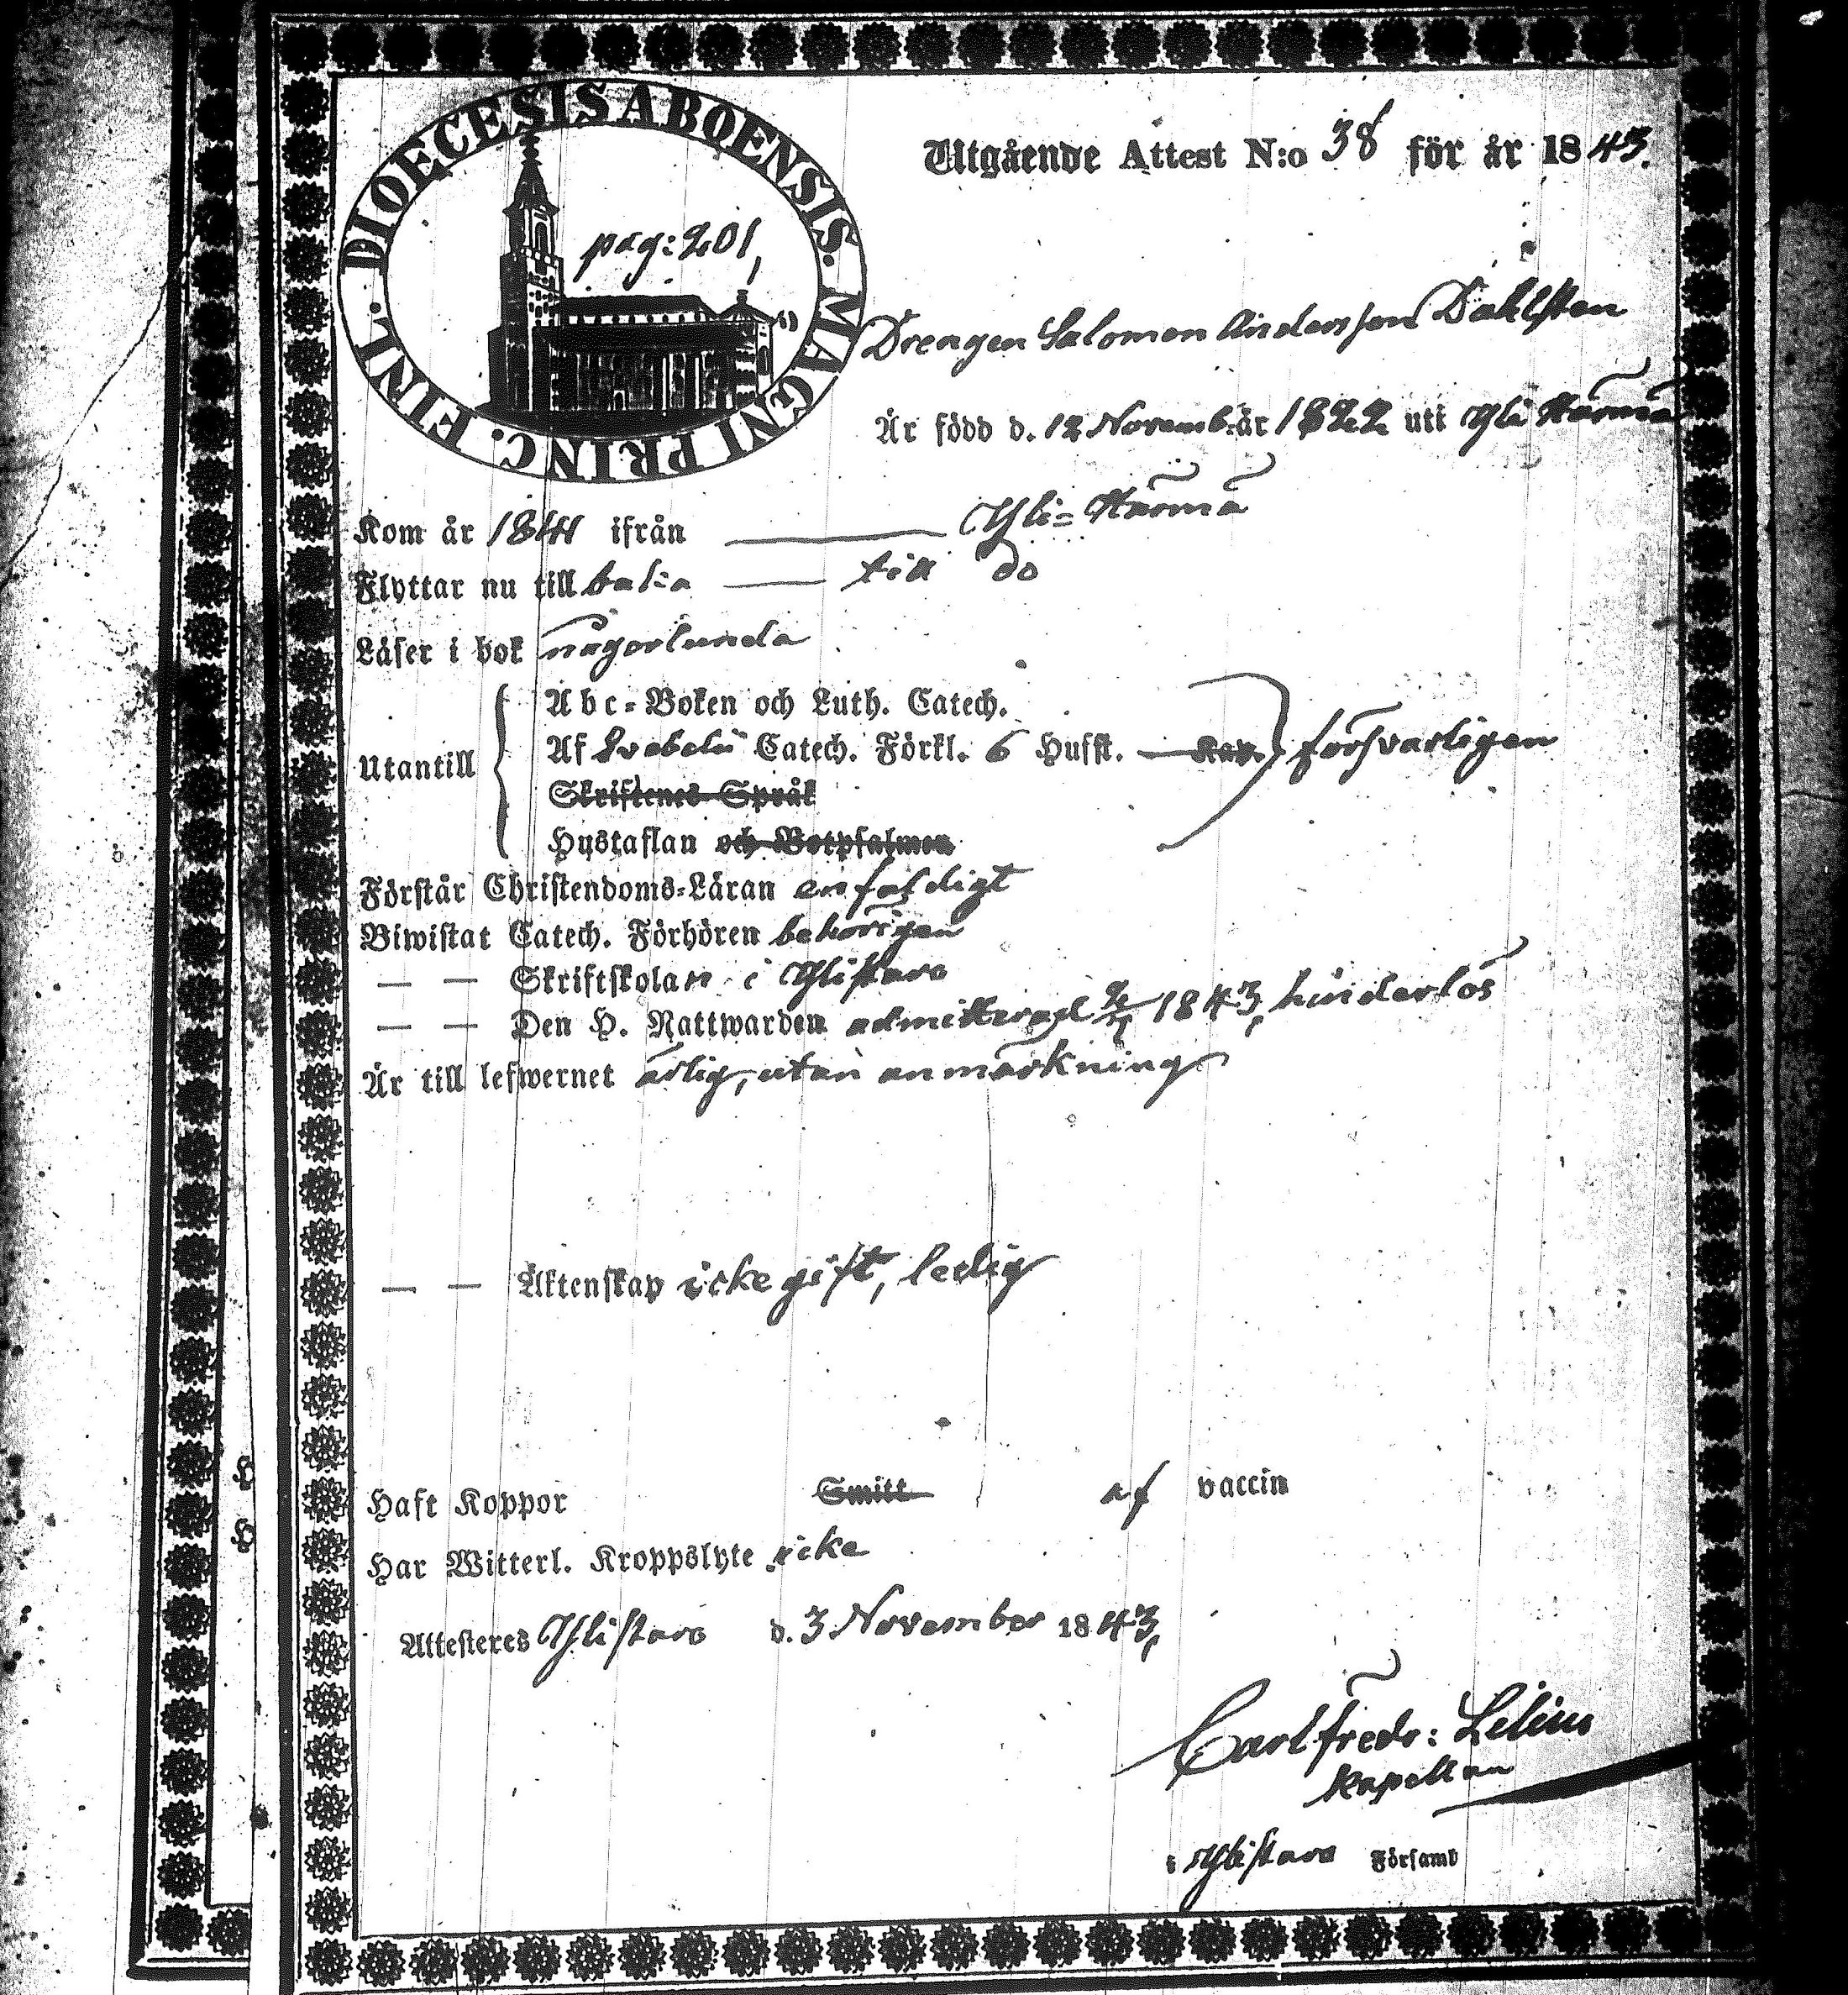 DIOECESIS ABOENSIS. MAGNI PRINC. FINL.
pag: 201,
Utgående Attest N:o 38 för år 1843.
Drengen Salomon Andersson Dahlsten
Är född d. 12 Novemb. år 1822 uti Yli Härmä
Kom år 1841 ifrån — Yli=Härmä
Flyttar nu till baka — till Do
Läser i bok någorlunda
Utantill
Abc=Boken och Luth. Catech.
Af Svebelii Catech. Förkl. 6 Hufst. — Kap. försvarligen
Skriftenes Språk
Hustaflan och Botpsalmen
Förstår Christendoms=Läran enfaldigt
Biwistat Catech. Förhören behörigen
— — Skriftskolan i Ylistaro
— — Den H. Nattwarden admitterad 1843, hinderlös
Är till lefwernet ärlig, utan anmärkning
— — Äktenskap icke gift, ledig
Haft Koppor Smitt af vaccin
Har Witterl. Kroppslyte icke
Attesteres Ylistaro d. 3 November 1843,
Carl Fredr: Lilius
Kapellan
i Ylistaro Församl